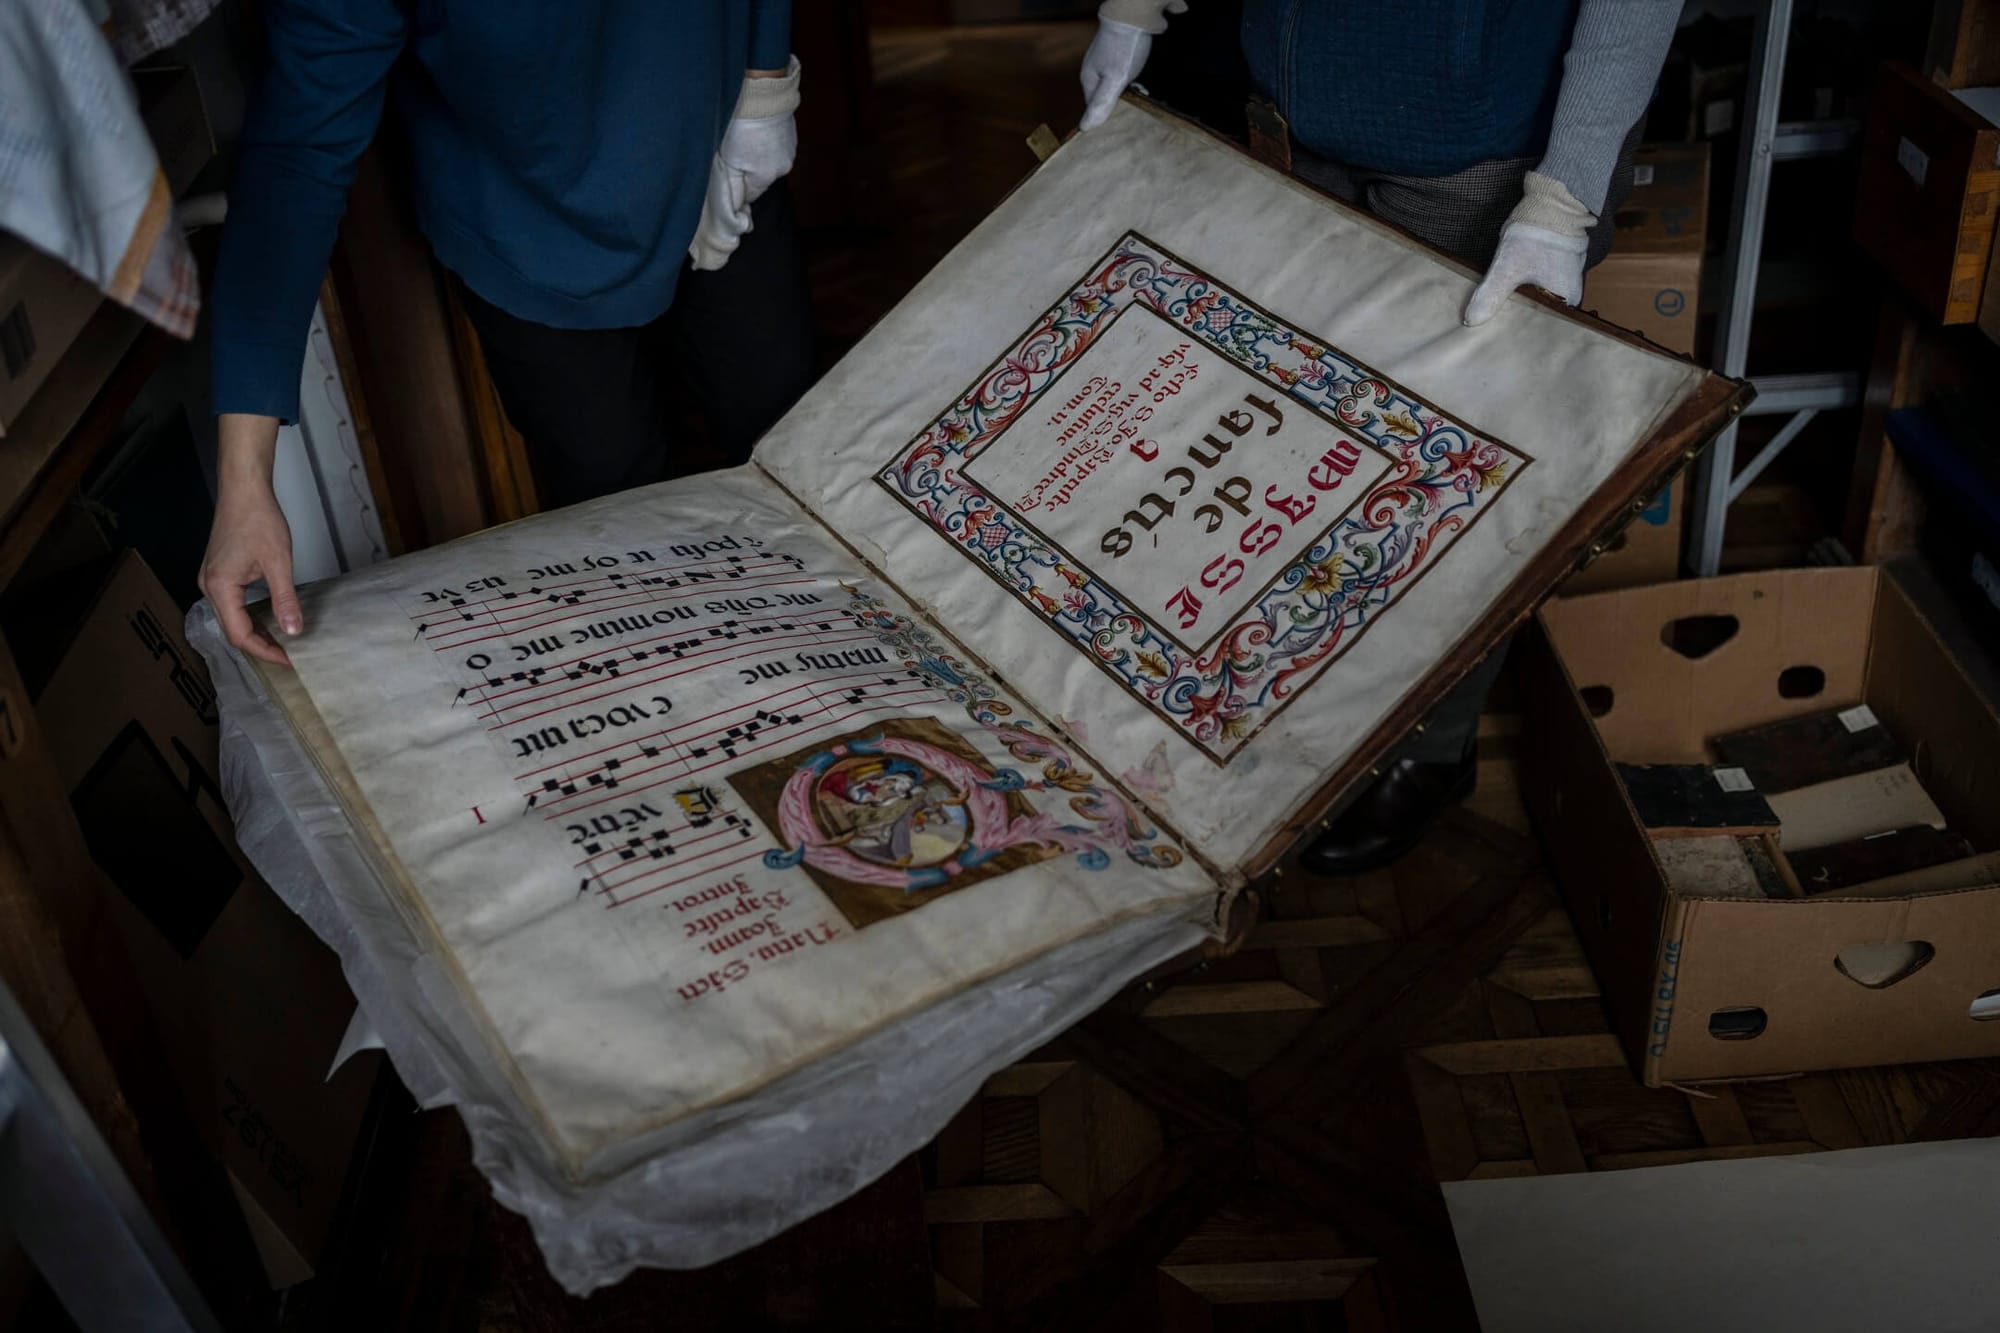 MISSÆ
de
sanctis
a
festo S. Jo. Baptiste
vsq; ad vig. S. Andree
exclusive
Tom. II.
Nativ. Sãcti
Joann.
Baptiste
Introi.
I
DE vẽtre
matris me e vocauit
me dñs nomine me o
& posu it os me um vt
L